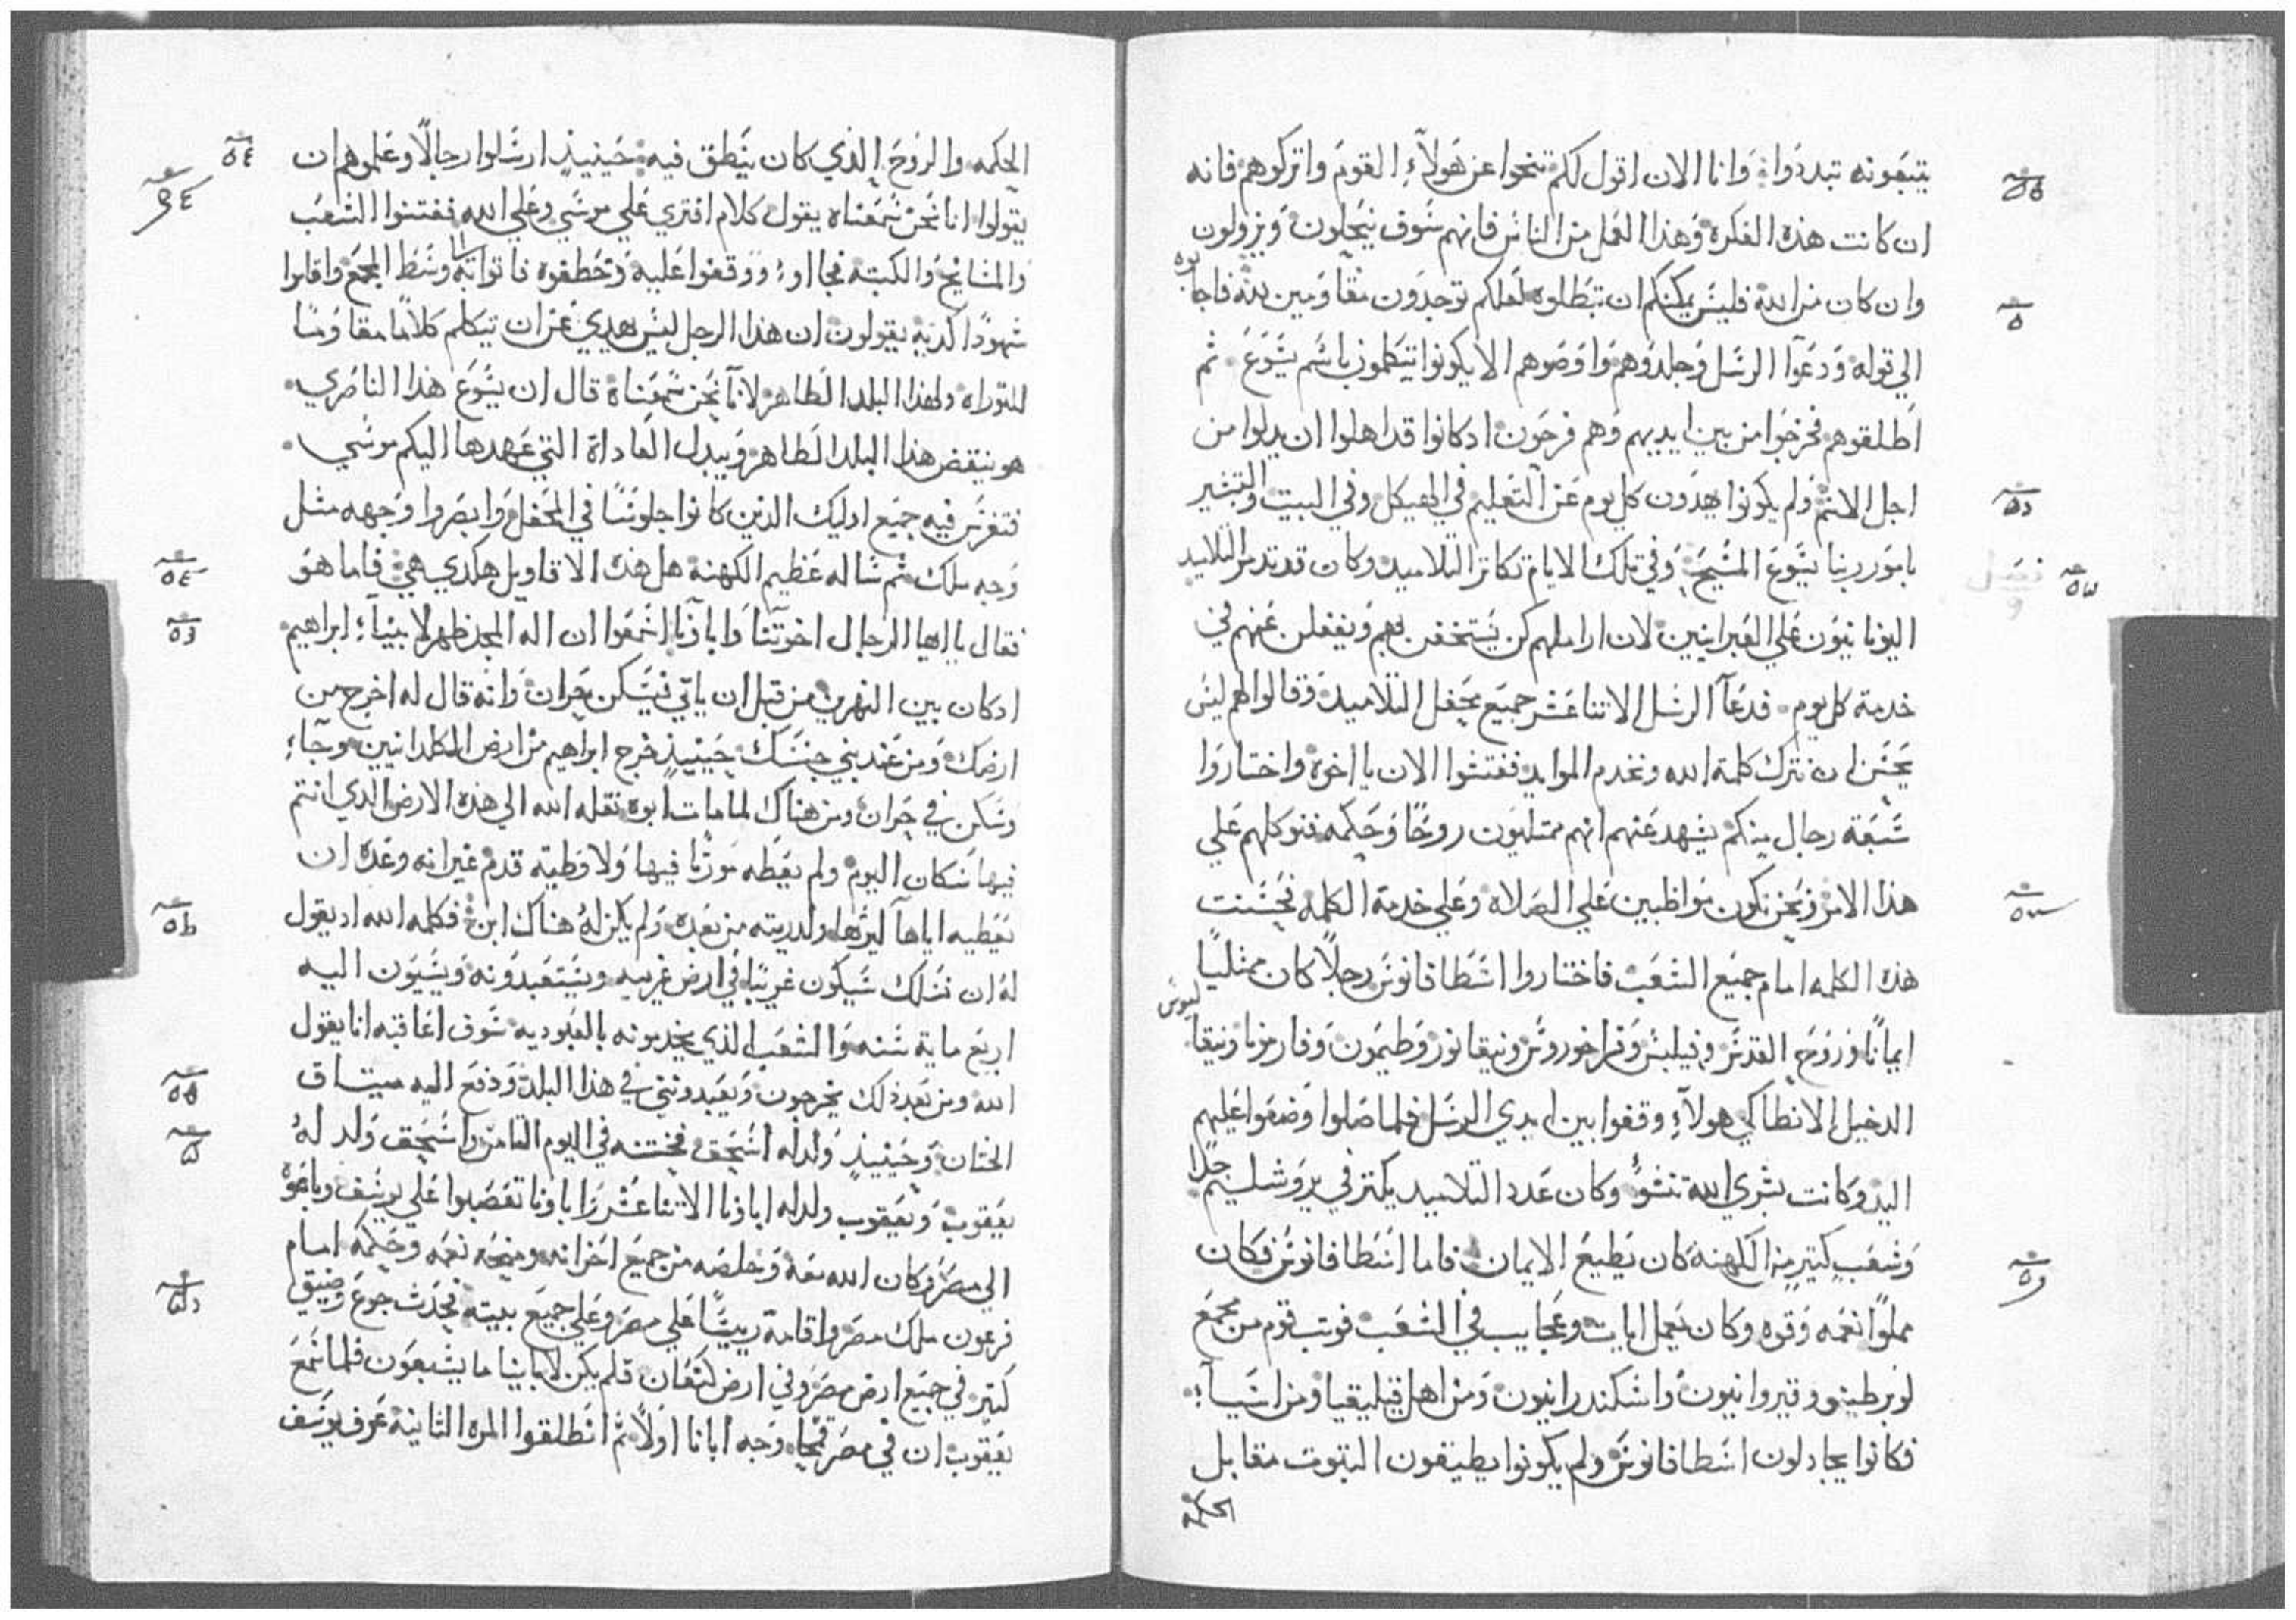 يتبعونه تبددوا وانا الان اقول لكم تنحوا عن هولاء القوم واتركوهم فانه
ان كانت هذه الفكرة وهذا العمل من الناس فانهم سوف ينحلون ويزولون
وان كان من الله فليس يمكنكم ان تبطلوه لعلكم توجدون مقاومين لله فاجابوه
الي قوله ودعوا الرسل وجلدوهم واوصوهم الا يكونوا يتكلمون باسم يسوع ثم
اطلقوهم فخرجوا من بين ايديهم وهم فرحون ادكانوا قد اهلوا ان يدلوا من
اجل الاسم ولم يكونوا يهدون كل يوم عن التعليم في الهيكل وفي البيت والتبشير
بامور ربنا يسوع المسيح وفي تلك الايام تكاثر التلاميد وكان قد تدمر التلاميد
اليونانيون علي العبرانيين لان اراملهم كن يستخفن بهم ويغفلن عنهم في
خدمة كل يوم فدعا الرسل الاتناعشر جميع محفل التلاميد وقالوا لهم ليس
يحسن ان نترك كلمة الله ونخدم الموايد ففتشوا الان يا اخوة واختاروا
سبعة رجال منكم يشهد عنهم انهم ممتليون روحا وحكمه فنوكلهم علي
هذا الامر ونحن نكون مواظبين علي الصلاه وعلي خدمة الكلمه فحسنت
هذه الكلمه امام جميع الشعب فاختاروا اسطافانوس رجلا كان ممتليا
ايمانا وروح القدس وفيلبس وفراخوروس ونيقانور وطيمون وفارمونا ونيقاليوس
الدخيل الانطاكي هولاء وقفوا بين ايدي الرسل فلما صلوا وضعوا عليهم
اليد وكانت بشري الله تنشو وكان عدد التلاميد يكتر في يروشليم جدا
وشعب كتير من الكهنة كان يطيع الايمان فاما اسطافانوس فكان
مملوا نعمه وقوه وكان يعمل ايات وعجايب في الشعب فوتب قوم من مجمع
لوبرطينو وقيروانيون واسكندرانيون ومن اهل قيليقيا ومن اسيا
فكانوا يجادلون اسطافانوس ولم يكونوا يطيقون التبوت مقابل
الحكمه
الحكمه والروح الذي كان ينطق فيه حينيذ ارسلوا رجالا وعلموهم ان
يقولوا انا نحن سمعناه يقول كلام افتري علي موسي وعلي الله ففتنوا الشعب
والمشايخ والكتبة فجااوا ووقفوا عليه وخطفوه فاتوا به وسط المجمع واقاموا
شهودا كدبه يقولون ان هذا الرجل ليس يهدي عن ان يتكلم كلاما مقاوما
للتوراه ولهذا البلد الطاهر لانا نحن سمعناه قال ان يسوع هذا الناصري
هو ينقض هذا البلد الطاهر ويبدل العاداة التي عهدها اليكم موسي
فتفرس فيه جميع اوليك الذين كانوا جلوسا في المحفل وابصروا وجهه مثل
وجه ملك ثم ساله عظيم الكهنة هل هذه الاقاويل هكدي هي فاما هو
فقال ياايها الرجال اخوتنا واباونا اسمعوا ان اله المجد ظهر لابينا ابراهيم
ادكان بين النهرين من قبل ان ياتي فيسكن بحران وانه قال له اخرج من
ارضك ومن عند بني جنسك حينيذ خرج ابراهيم من ارض الكلدانيين وجاء
وسكن في حران ومن هناك لما مات ابوه نقله الله الي هذه الارض الدي انتم
فيها سكان اليوم ولم يعطه مورثا فيها ولا وطية قدم غير انه وعده ان
يعطيه اياها ليرثها ولدريته من بعده ولم يكن له هناك ابن فكلمه الله اد يقول
له ان نسلك سيكون غريبا في ارض غريبه ويستعبدونه ويسيون اليه
اربع ماية سنه والشعب الذي يخدمونه بالعبوديه سوف اعاقبه انا يقول
الله ومن بعد ذلك يخرجون ويعبدونني في هذا البلد ودفع اليه ميتاق
الختان وحينيذ ولد له اسحق فختنه في اليوم التامن واسحق ولد له
يعقوب ويعقوب ولد له اباونا الاتناعشر واباونا تعصبوا علي يوسف وباعوه
الي مصر وكان الله معه وخلصه من جميع احزانه ومنحه نعمه وحكمه امام
فرعون ملك مصر واقامة رييسا علي مصر وعلي جميع بيته فحدث جوع وضيق
كتير في جميع ارض مصر وفي ارض كنعان فلم يكن لابابينا ما يشبعون فلما سمع
يعقوب ان في مصر قمحا وجه ابانا اولا ثم انطلقوا المره الثانية عرف يوسف